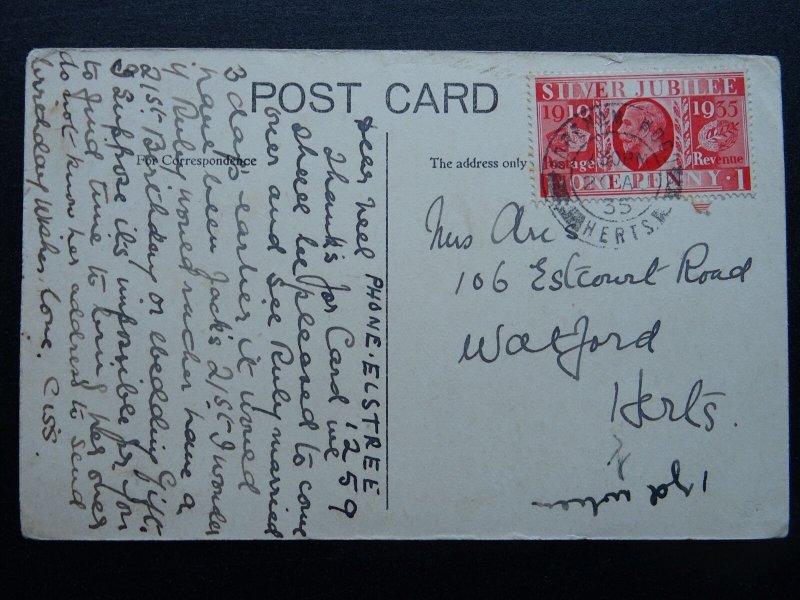 POST CARD
For Correspondence
The address only
SILVER JUBILEE
1910 1935
Postage Revenue
ONE PENNY · 1
35
HERTS
PHONE. ELSTREE
1259
Dear Nell
Thanks for Card we
shall be pleased to come
over and see Ruby married
3 days earlier it would
have been Jack's 21st I wonder
if Ruby would rather have a
21st Birthday or Wedding Gift.
I suppose it's impossible for you
to find time to bring her over
do not know her address to send
birthday wishes, love. Ciss.
Mrs
106 Estcourt Road
Watford
Herts.